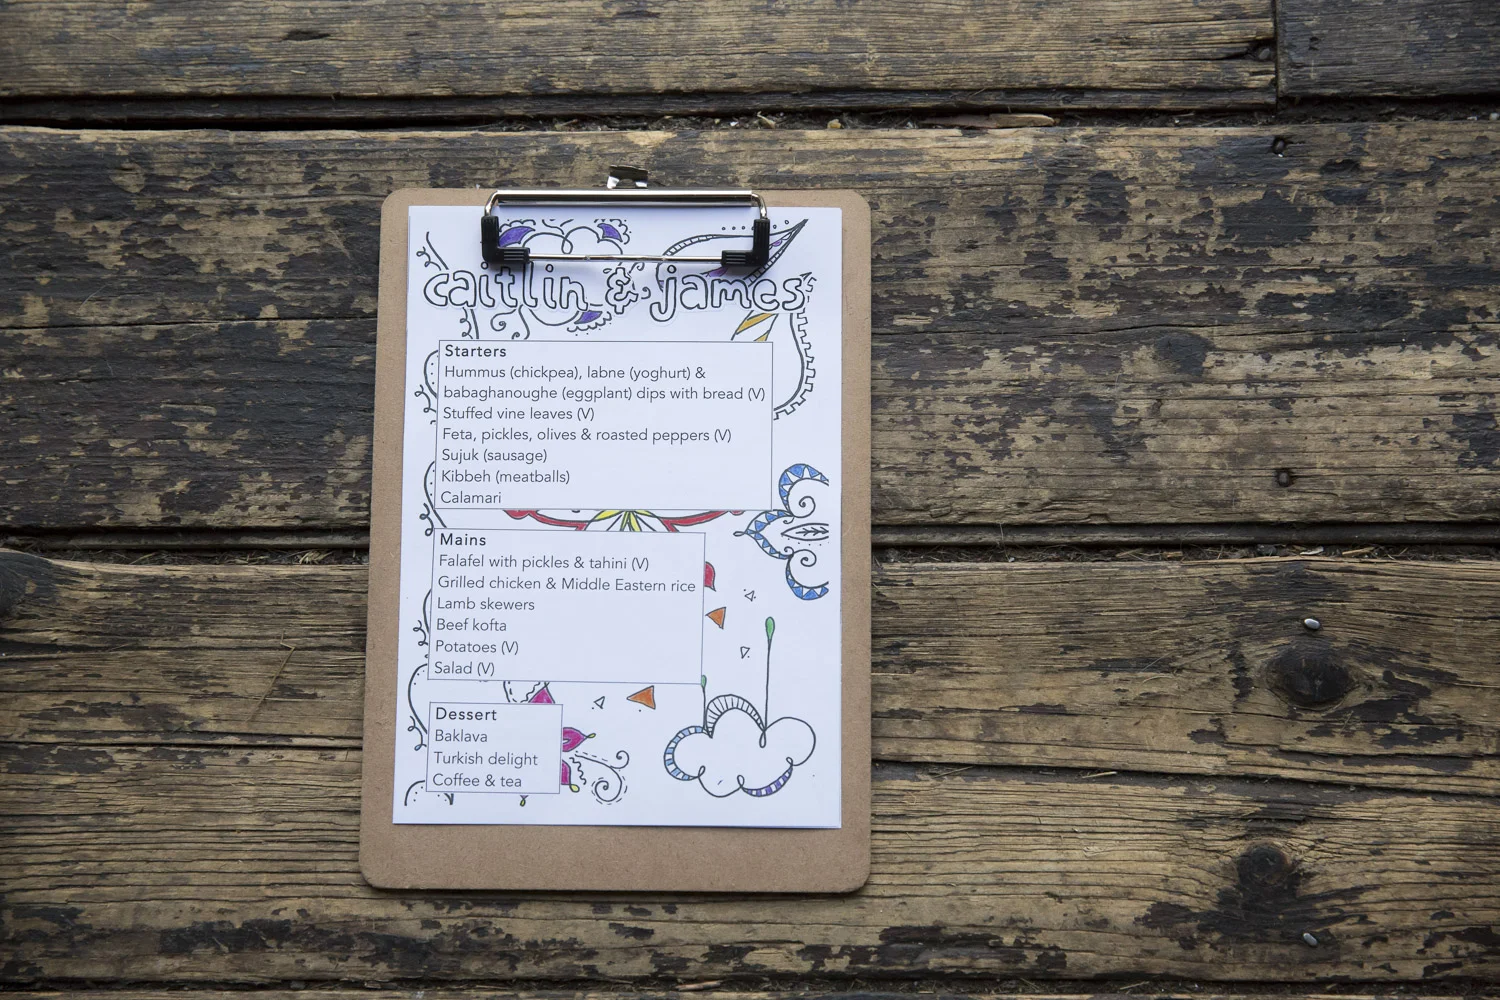 caitlin & james
Starters
Hummus (chickpea), labne (yoghurt) &
babaghanoughe (eggplant) dips with bread (V)
Stuffed vine leaves (V)
Feta, pickles, olives & roasted peppers (V)
Sujuk (sausage)
Kibbeh (meatballs)
Calamari
Mains
Falafel with pickles & tahini (V)
Grilled chicken & Middle Eastern rice
Lamb skewers
Beef kofta
Potatoes (V)
Salad (V)
Dessert
Baklava
Turkish delight
Coffee & tea